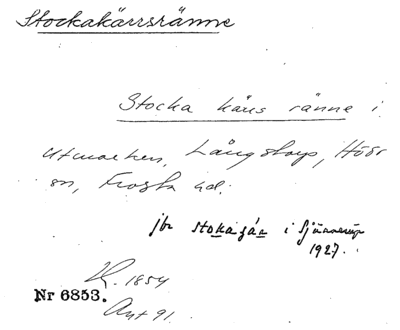 Stockakärrsränne
Stocka kärrs ränne i
utmarken, Långstorp, Höör
sn, Frosta hd.
jbr stokajár i Sjunnerup
1927.
1854
Nr 6853.
Ant 91